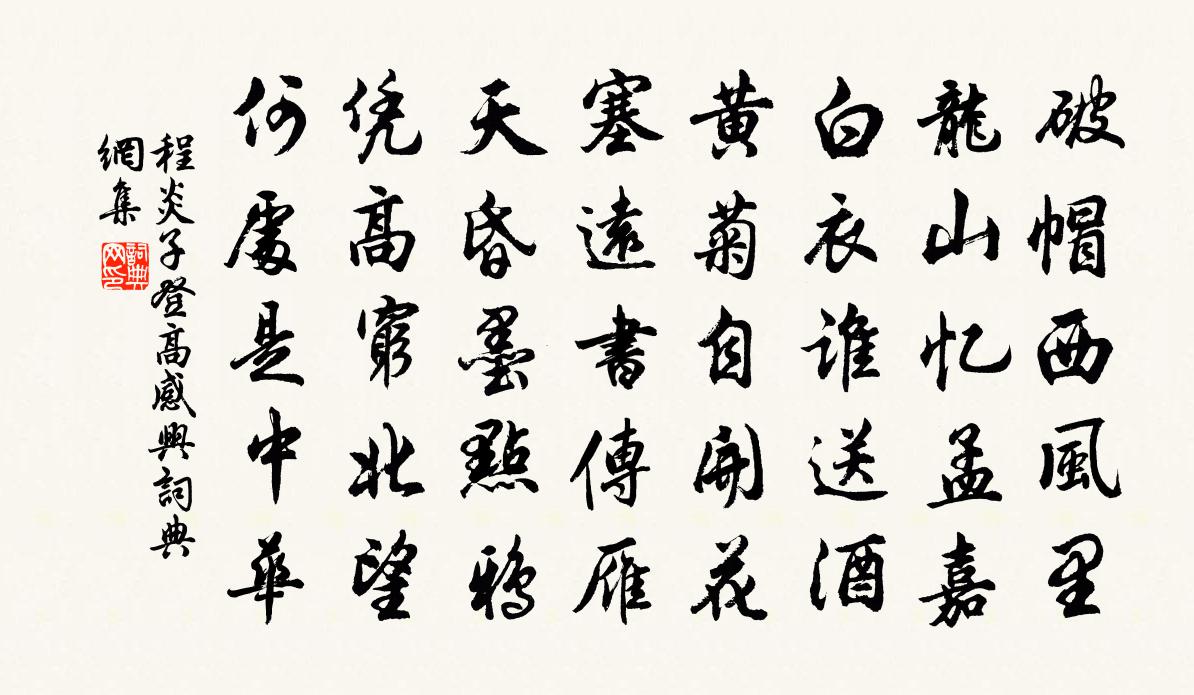 破帽西風里
龍山忆孟嘉
白衣谁送酒
黄菊自開花
塞遠書傳雁
天昏墨點鴉
凭高窮北望
何處是中華
程炎子登高感興詞典
網集
詞典
网印